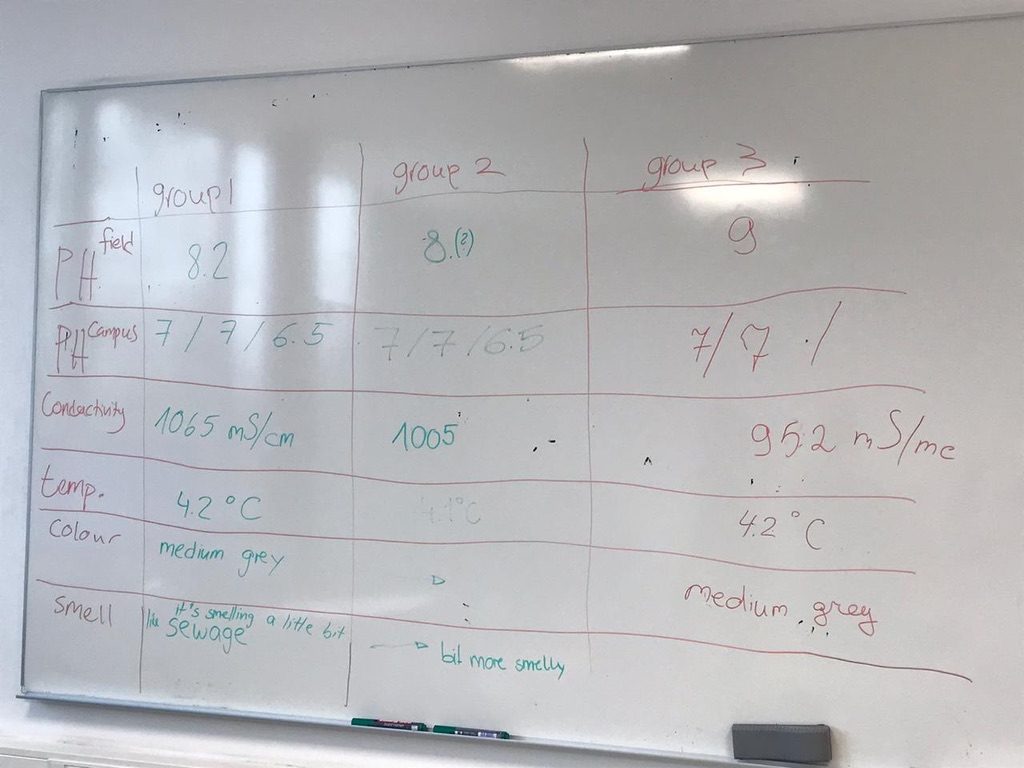 group 1 group 2 group 3
PH field 8.2 8.(?) 9
PH Campus 7 / 7 / 6.5 7/7/6.5 7/7 /
Conductivity 1065 mS/cm 1005 952 mS/mc
temp. 4.2 °C 4.1°C 4.2 °C
Colour medium grey medium grey
smell it's smelling a little bit
like sewage bit more smelly